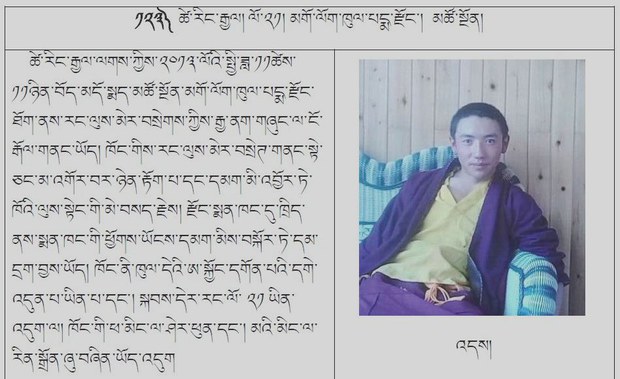 ༡༢༥༽ ཚེ་རིང་རྒྱལ། ལོ་༢༡། མགོ་ལོག་ཁུལ་པདྨ་རྫོང་། མཚོ་སྔོན།
ཚེ་རིང་རྒྱལ་ལགས་ཀྱིས་༢༠༡༣་ལོའི་སྤྱི་ཟླ་༡༡ཚེས་
༡༡ཉིན་བོད་མདོ་སྨད་མཚོ་སྔོན་མགོ་ལོག་ཁུལ་པདྨ་རྫོང་
ཐོག་ནས་རང་ལུས་མེར་བསྲེགས་ཀྱིས་རྒྱ་ནག་གཞུང་ལ་ངོ་
རྒོལ་གནང་ཡོད། ཁོང་གིས་རང་ལུས་མེར་བསྲེཊ་གནང་སྟེ་
ཅང་མ་འགོར་བར་ཉེན་རྟོག་པ་དང་དམག་མི་འབྱོར་ཏེ་
ཁོའི་ལུས་སྟེང་གི་མེ་བསད་རྗེས། རྫོང་སྨན་ཁང་དུ་ཁྲིད་
ནས་སྨན་ཁང་གི་ཕྱོགས་ཡོངས་དམག་མིས་བསྐོར་ཏེ་དམ་
དྲག་བྱས་ཡོད། ཁོང་ནི་ཁུལ་དེའི་ཨ་སྐྱོང་དགོན་པའི་དགེ་
འདུན་པ་ཡིན་པ་དང་། སྐབས་དེར་རང་ལོ་ ༢༡ ཡིན་
འདུག་ལ། ཁོང་གི་ཕ་མིང་ལ་ཤེར་ཕུན་དང་། མའི་མིང་ལ་
རིན་སྒྲོན་ཞུ་བཞིན་ཡོད་འདུག
འདས།